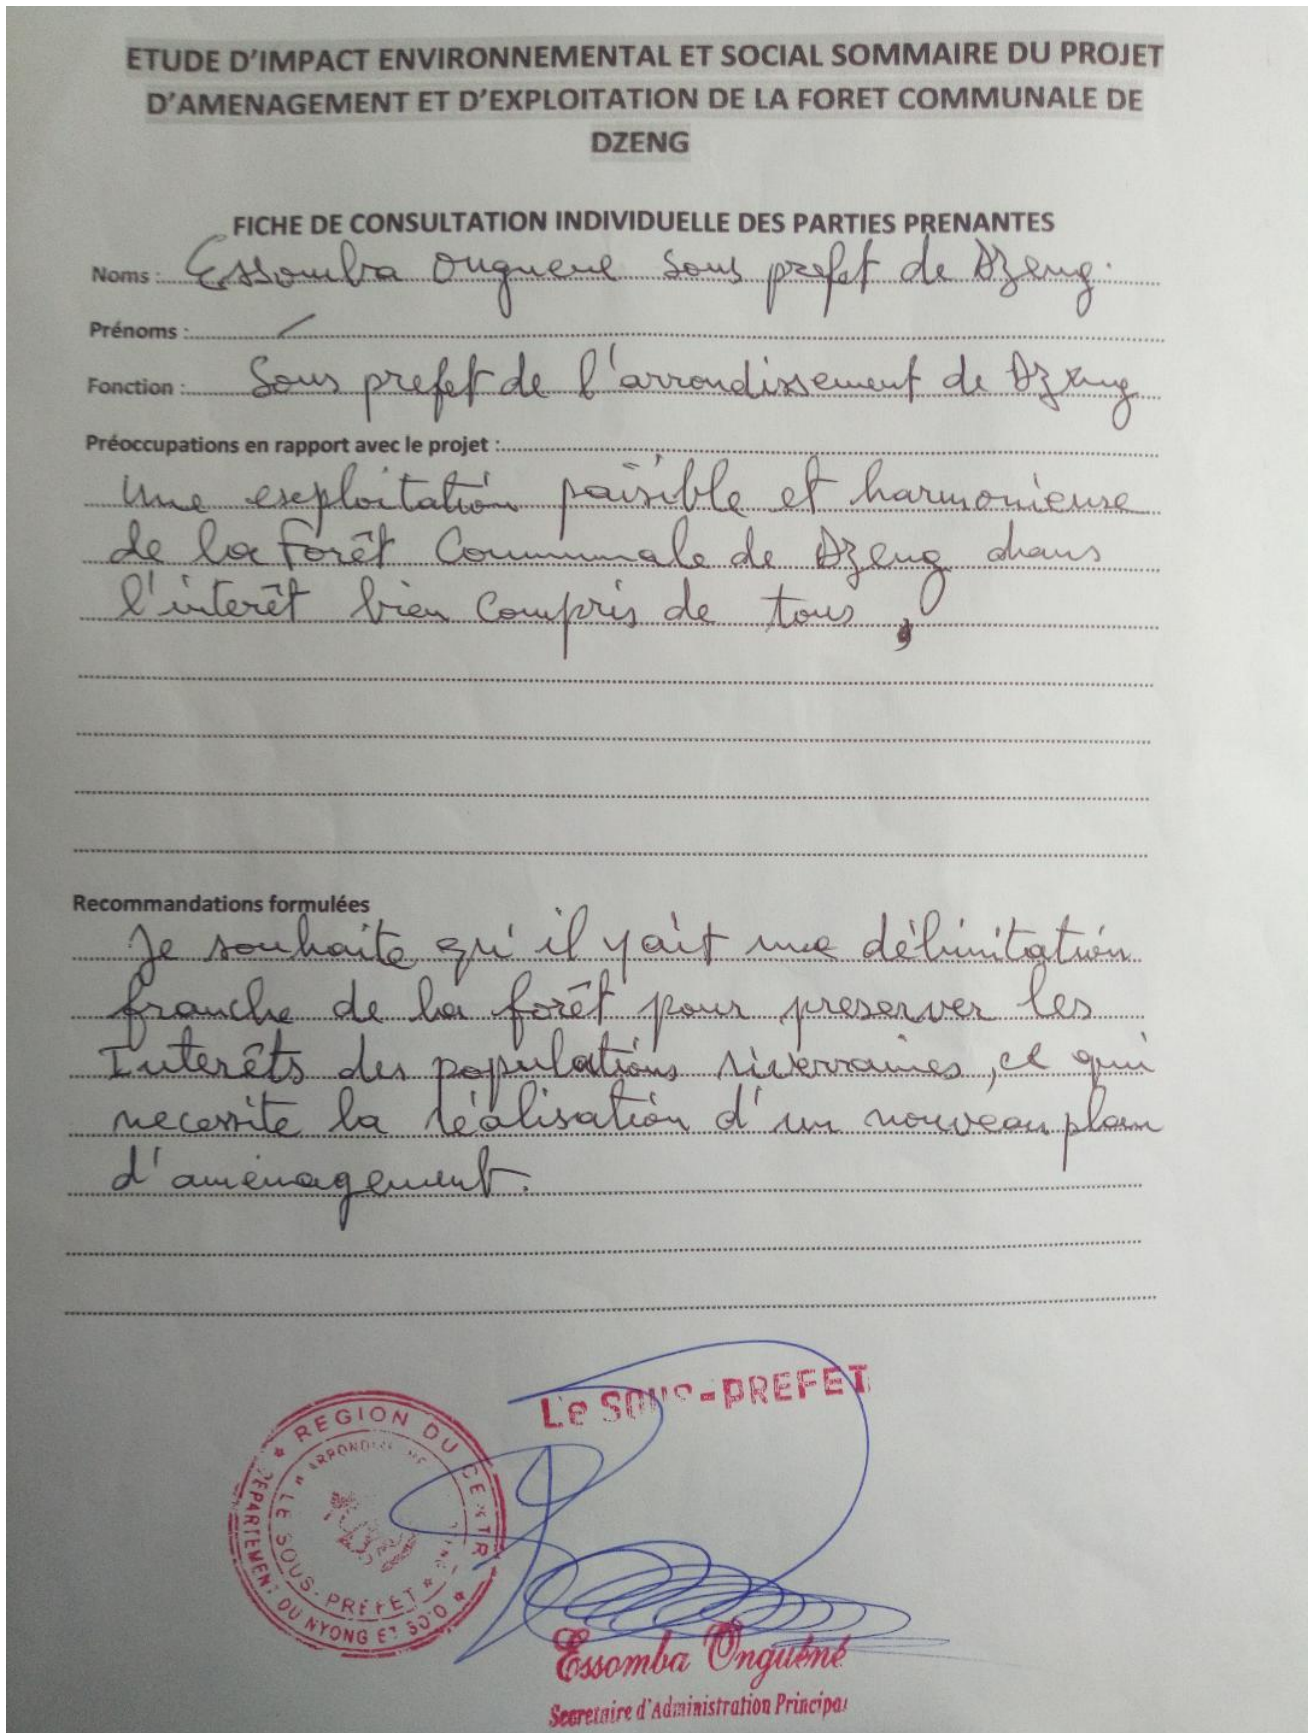 ETUDE D'IMPACT ENVIRONNEMENTAL ET SOCIAL SOMMAIRE DU PROJET
D'AMENAGEMENT ET D'EXPLOITATION DE LA FORET COMMUNALE DE
DZENG
FICHE DE CONSULTATION INDIVIDUELLE DES PARTIES PRENANTES
Noms : Essomba Onguene Sous prefet de Dzeng.
Prénoms :
Fonction : Sous prefet de l'arrondissement de Dzeng
Préoccupations en rapport avec le projet :
Une exploitation paisible et harmonieuse
de la Forêt Communale de Dzeng dans
l'interêt bien Compris de tous
Recommandations formulées
Je souhaite qu'il y ait une délimitation
franche de la forêt pour preserver les
Interêts des populations riverraines, ce qui
necessite la réalisation d'un nouveau plan
d'aménagement.
Le SOUS-PREFET
REGION DU CENTRE
DEPARTEMENT DU NYONG ET SO'O
LE SOUS-PREFET
Essomba Onguéné
Secretaire d'Administration Principal